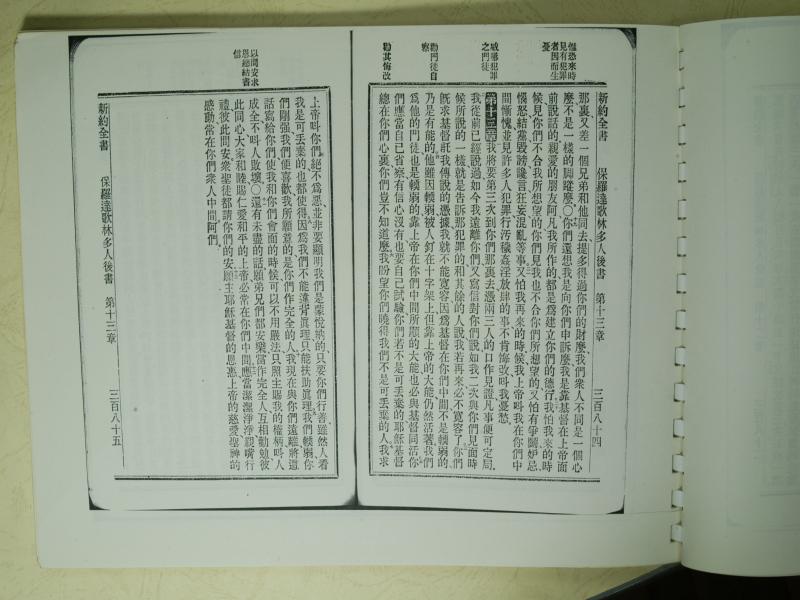 見有犯罪
者因而生
憂
威嚇犯罪
之門徒
勸門徒自
察
勸其悔改
新約全書 保羅達歌林多人後書 第十三章 三百八十四
那裏又差一個兄弟和他同去提多得過你們的財麼我們衆人不同是一個心
麼不是一樣的脚蹤麼〇你們還想我是向你們申訴麼我是靠基督在上帝面
前說話的親愛的朋友阿凡我所作的都是爲建立你們的德行我怕我來的時
候見你們不合我所想望的你們見我也不合你們所想望的又怕有爭鬬妒忌
惱怒結黨毀謗讒言狂妄混亂等事又怕我再來的時候我上帝呌我在你們中
間慚愧並見許多人犯罪行汚穢姦淫放肆的事不肯悔改呌我憂愁
第十三章我將要第三次到你們那裏去憑兩三人的口作見證凡事便可定局
我從前已經說過如今我遠離你們又寫信對你們說如我二次與你們見面時
候所說的一樣就是告訴那犯罪的和其餘的人說我若再來必不寬容了你們
旣求基督託我傳說的憑據我就不能寬容因爲基督在你們中間不是輭弱的
乃是有能的他雖因輭弱被人釘在十字架上但靠上帝的大能仍然活著我們
爲他的門徒也是輭弱的靠上帝在你們中間所顯的大能也必與基督同活你
們應當自已省察有信心沒有也要自己試驗你們若不是可丟棄的耶穌基督
總在你們心裏你們豈不知道麼我盼望你們曉得我們不是可丟棄的人我求
以問安求
恩總結書
信
上帝呌你們絕不爲惡並非要顯明我們是蒙悅納的只要你們行善雖然人看
我是可丟棄的也都使得因爲我們不能違背眞理只能扶助眞理我們輭弱你
們剛强我們便喜歡我所願意的是你們作完全的人我現在與你們遠離將這
話寫給你們使我和你們會面的時候可以不用嚴法只照主賜我的權柄呌人
成全不呌人敗壞〇還有未盡的話願弟兄們都安樂當作完全人互相勸勉彼
此同心大家和睦賜仁愛和平的上帝必常在你們中間應當潔潔淨淨親嘴行
禮彼此問安衆聖徒都請你們的安願主耶穌基督的恩惠上帝的慈愛聖神的
感動常在你們衆人中間阿們
新約全書 保羅達歌林多人後書 第十三章 三百八十五